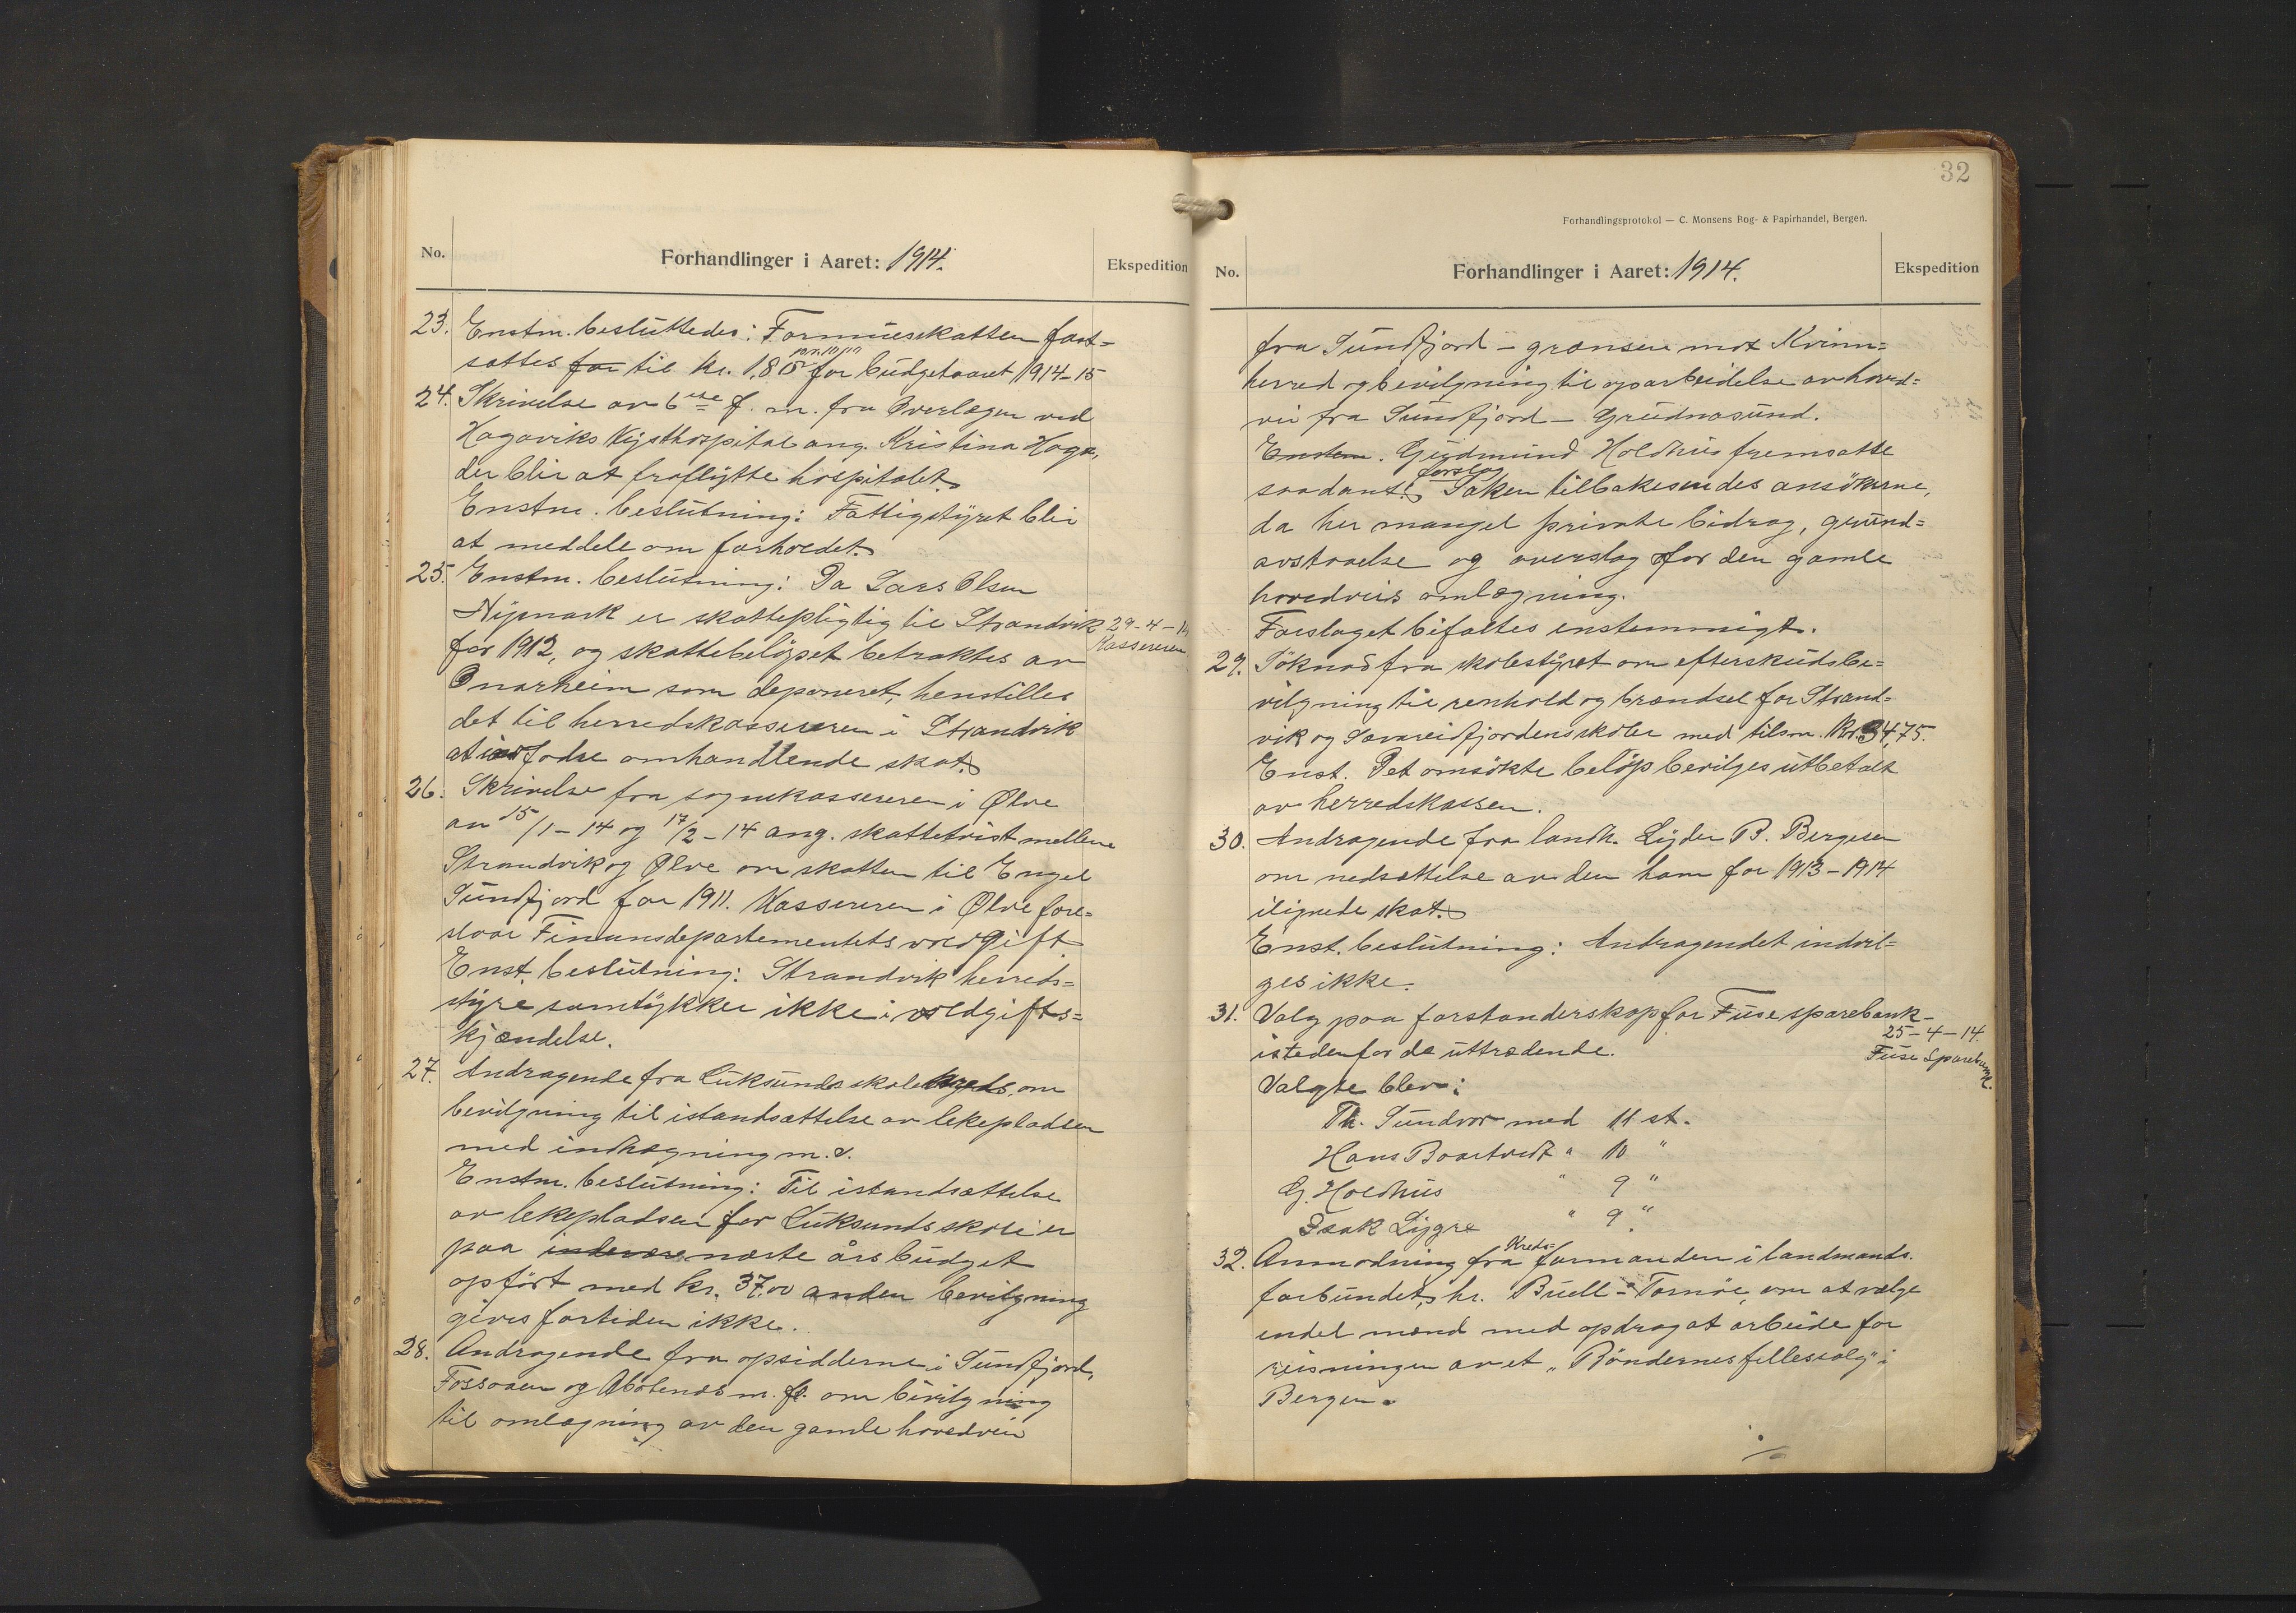 No.
Forhandlinger i Aaret: 1914.
Ekspedition
23. Enstm. besluttedes: Formuesskatten fast=
sættes for til kr. 1,80 for budgetaaret 1914-15
24. Skrivelse av 6te f. m. fra Overlægen ved
Hagaviks Kysthospital ang. Kristina Haga,
der blir at fraflytte hospitalet.
Enstm. beslutning: Fattigstyret blir
at meddele om forholdet.
25. Enstm. beslutning: Da Lars Olsen
Nymark er skattepligtig til Strandvik
29-4-14
Kassereren
for 1912, og skattebeløpet betraktes av
Onarheim som deponeret, henstilles
det til herredskassereren i Strandvik
at indfodre omhandlende skat.
26. Skrivelse fra sognekassereren i Ølve
av 15/1-14 og 17/2-14 ang. skattetvist mellem
Strandvik og Ølve om skatten til Engel
Sundfjord for 1911. Kassereren i Ølve fore=
slaar Finansdepartementets voldgift
Enst. beslutning: Strandvik herreds=
styre samtykker ikke i voldgifts=
kjændelse.
27. Andragende fra Luksunds skolekreds om
bevilgning til istandsættelse av lekepladsen
med indhægning m. v.
Enstm. beslutning: Til istandsættelse
av lekepladsen for Luksunds skole er
paa indevære næste års budget
opført med kr. 37.00 anden bevilgning
gives fortiden ikke.
28. Andragende fra opsidderne i Sundfjord,
Fossaaen og m. fl. om bevilgning
til omlægning av den gamle hovedvei
32
Forhandlingsprotokol — C. Monsens Bog- & Papirhandel, Bergen.
No.
Forhandlinger i Aaret: 1914.
Ekspedition
fra Sundfjord - grænsen mot Kvinn=
herred og bevilgning til oparbeidelse av hoved=
vei fra Sundfjord - Grudnasund.
Enstem. Gudmund Holdhus fremsatte
saadant forslag: Saken tilbakesendes ansøkerne,
da her mangel private bidrag, grund=
avstaaelse og overslag for den gamle
hovedveis omlægning.
Forslaget bifaltes enstemmigt.
29. Søknad fra skolestyret om efterskudsbe=
vilgning til renhold og brændsel for Strand=
vik og Sævareidfjordens skoler med tilsm. Kr. 34,75.
Enst. Det omsøkte beløp bevilges utbetalt
av herredskassen.
30. Andragende fra landh. Lyder B. Bergesen
om nedsættelse av den ham for 1913-1914
ilignede skat.
Enst. beslutning: Andragendet indvil=
ges ikke.
31. Valg paa forstanderskap for Fuse sparebank
istedenfor de uttrædende.
25-4-14.
Fuse Sparebank.
Valgte blev:
Th. Sundvor med 11 st.
Hans Baartvedt " 10 "
G. Holdhus " 9 "
Isak Lygre " 9 "
32. Anmodning fra Kreds=formanden i landmands.
forbundet, hr. Buell-Tornøe, om at vælge
endel mænd med opdrag at arbeide for
reisningen av et "Bøndernes fellessalg" i
Bergen.